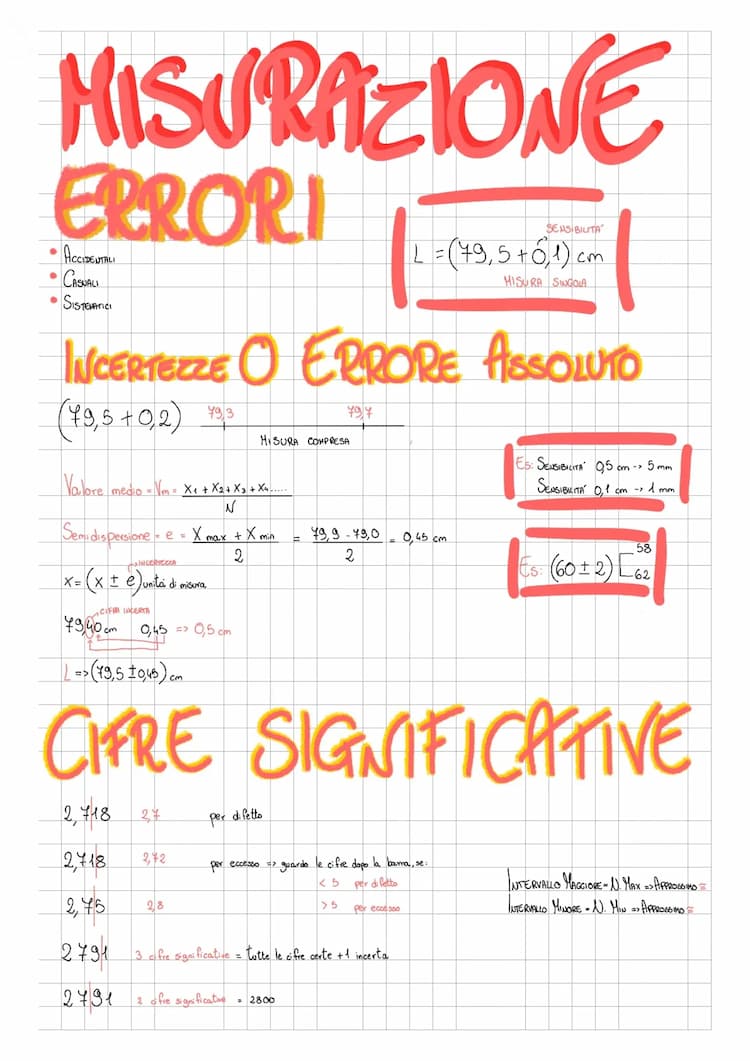 MISURAZIONE
ERRORI
• ACCIDENTALI
• CASUALI
• SISTEMATICI
SENSIBILITA'
L = (79,5 + 0,1) cm
MISURA SINGOLA
INCERTEZZE O ERRORE ASSOLUTO
(79,5 + 0,2)
79,3 79,7
MISURA COMPRESA
Valore medio = Vm = X1 + X2 + X3 + X4..... / N
Semidispersione = e = X max + X min / 2 = 79,9 - 79,0 / 2 = 0,45 cm
INCERTEZZA
X = (x ± e) unità di misura
CIFRA INCERTA
79,40 cm 0,45 => 0,5 cm
L => (79,5 ± 0,45) cm
Es: SENSIBILITA' 0,5 cm -> 5 mm
SENSIBILITA' 0,1 cm -> 1 mm
Es: (60 ± 2) [ 58
62
CIFRE SIGNIFICATIVE
2,7|18 2,7 per difetto
2,71|8 2,72 per eccesso => guardo le cifre dopo la barra, se:
< 5 per difetto
2,7|5 2,8 > 5 per eccesso
279|1 3 cifre significative = tutte le cifre certe + 1 incerta
27|91 2 cifre significative = 2800
INTERVALLO MAGGIORE = N. MAX => APPROSSIMO ≅
INTERVALLO MINORE = N. MIN => APPROSSIMO ≅